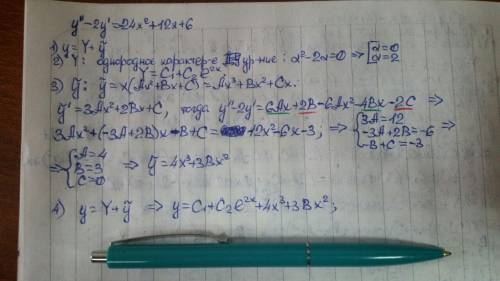 y'' - 2y' = 24x² + 12x + 6
1) y = Y + ỹ
2) Y: однородное характер-е ур-ние: α² - 2α = 0 ⟹ [α = 0 α = 2
Y = C₁ + C₂e^{2x}
3) ỹ: ỹ = x(Ax² + Bx + C) = Ax³ + Bx² + Cx.
y' = 3Ax² + 2Bx + C, тогда y'' - 2y' = 6Ax + 2B - 6Ax² - 4Bx - 2C ⟹
3Ax² + (-3A + 2B)x - B + C = -12x² - 6x - 3, ⟹ {3A = -12 -3A + 2B = -6 -B + C = -3 ⟹
⟹ {A = 4 B = 3 C = 0 ⟹ ỹ = 4x³ + 3Bx²
4) y = Y + ỹ ⟹ y = C₁ + C₂e^{2x} + 4x³ + 3Bx²;